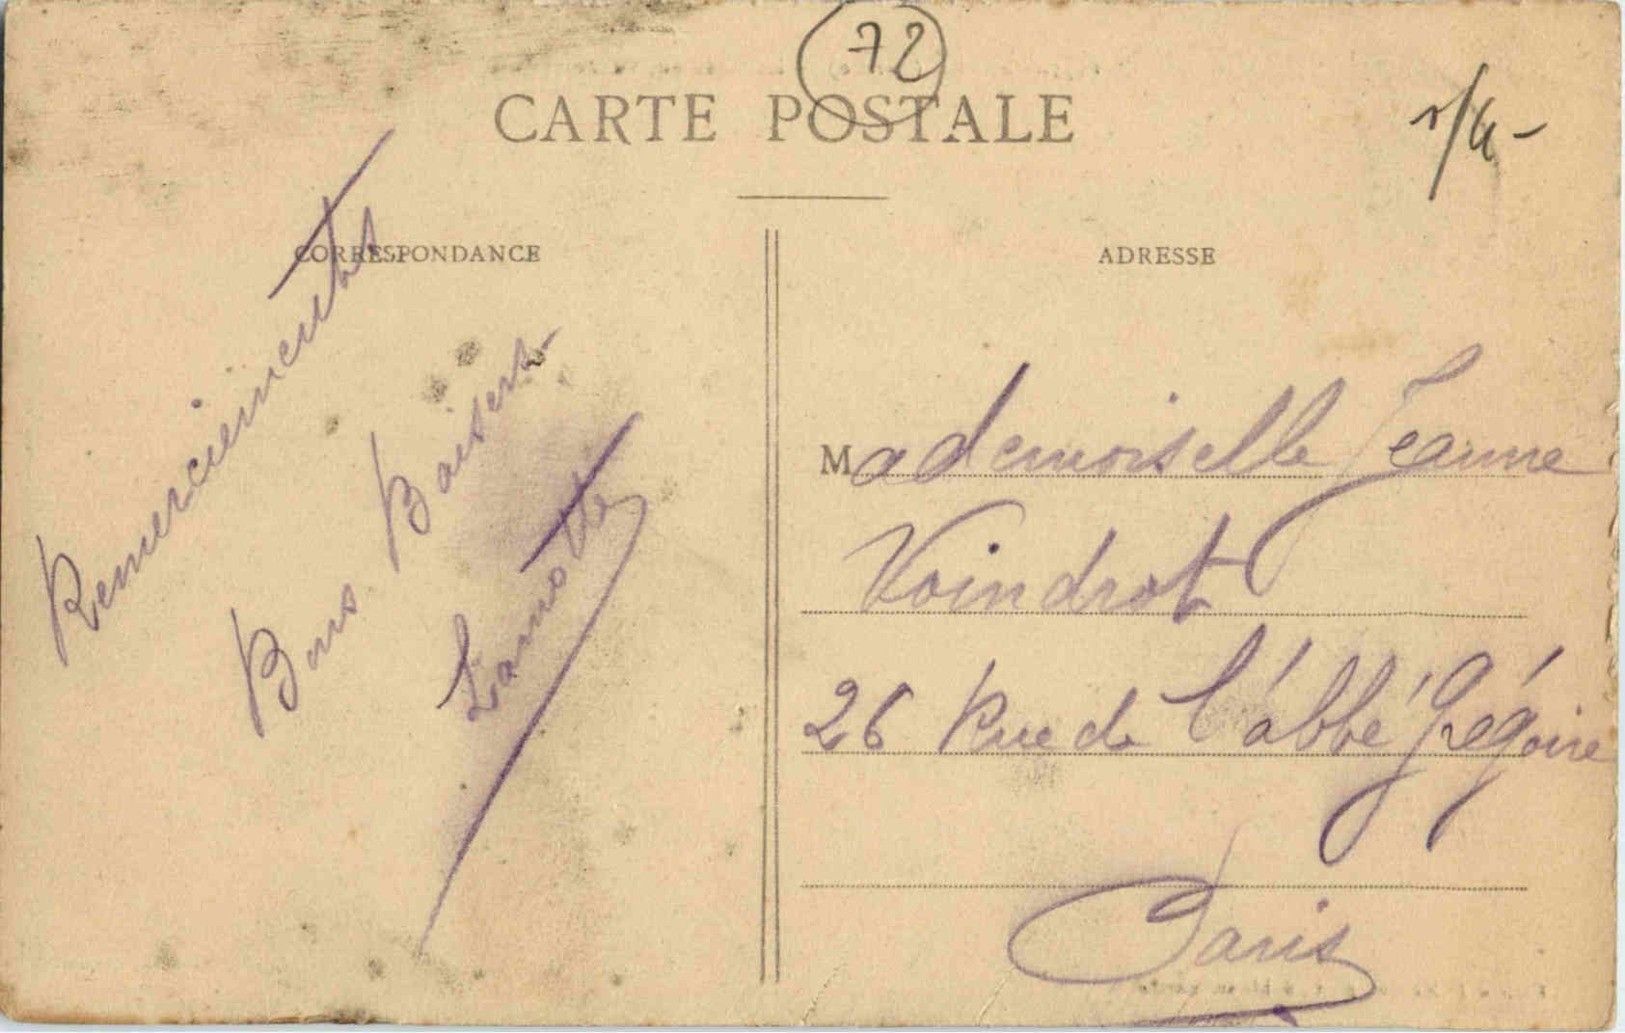 72
CARTE POSTALE
CORRESPONDANCE
Remerciements
Bons Baisers
Lamotte
ADRESSE
Mademoiselle Jeanne
Voindrot
26 Rue de l'abbé Grégoire
Paris